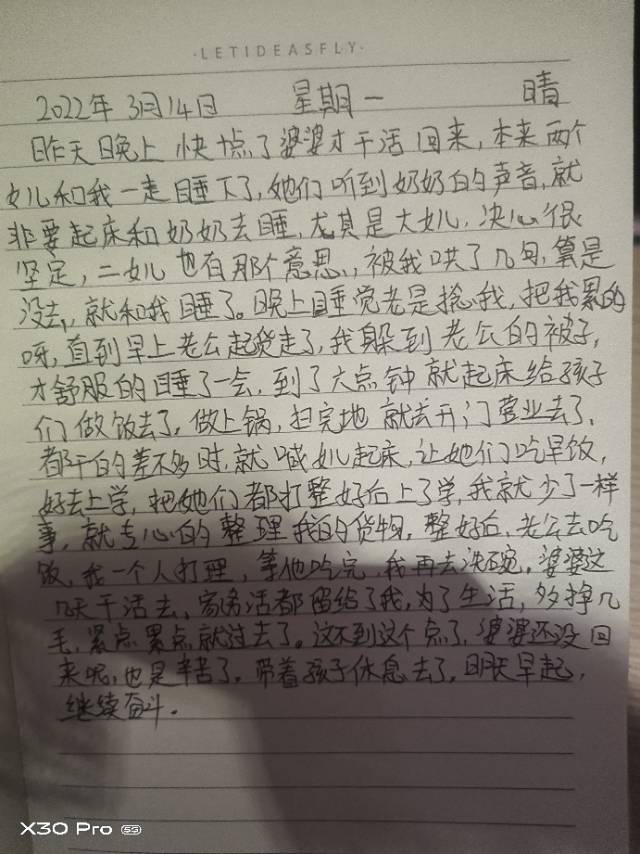 ·LETIDEASFLY·
2022年 3月14日 星期一 晴
昨天晚上 快十点了婆婆才干活回来,本来两个
女儿和我一走睡下了,她们听到奶奶的声音,就
非要起床和奶奶去睡,尤其是大女儿,决心很
坚定,二女儿也有那个意思,被我哄了几句,算是
没去,就和我睡了。晚上睡觉老是捻我,把我累的
呀,直到早上老公起货走了,我躲到老公的被子,
才舒服的睡了一会,到了六点钟就起床给孩子
们做饭去了,做上锅,扫完地就去开门营业去了,
都干的差不多时,就喊女儿起床,让她们吃早饭,
好去上学,把她们都打整好后上了学,我就少了一样
事,就专心的整理我的货物,整好后,老公去吃
饭,我一个人打理,等他吃完,我再去洗碗,婆婆这
几天干活去,家务活都留给了我,为了生活,多挣几
毛,累点累点就过去了。这不到这个点了,婆婆还没回
来呢,也是辛苦了,带着孩子休息去了,明天早起,
继续奋斗。
X30 Pro 5G